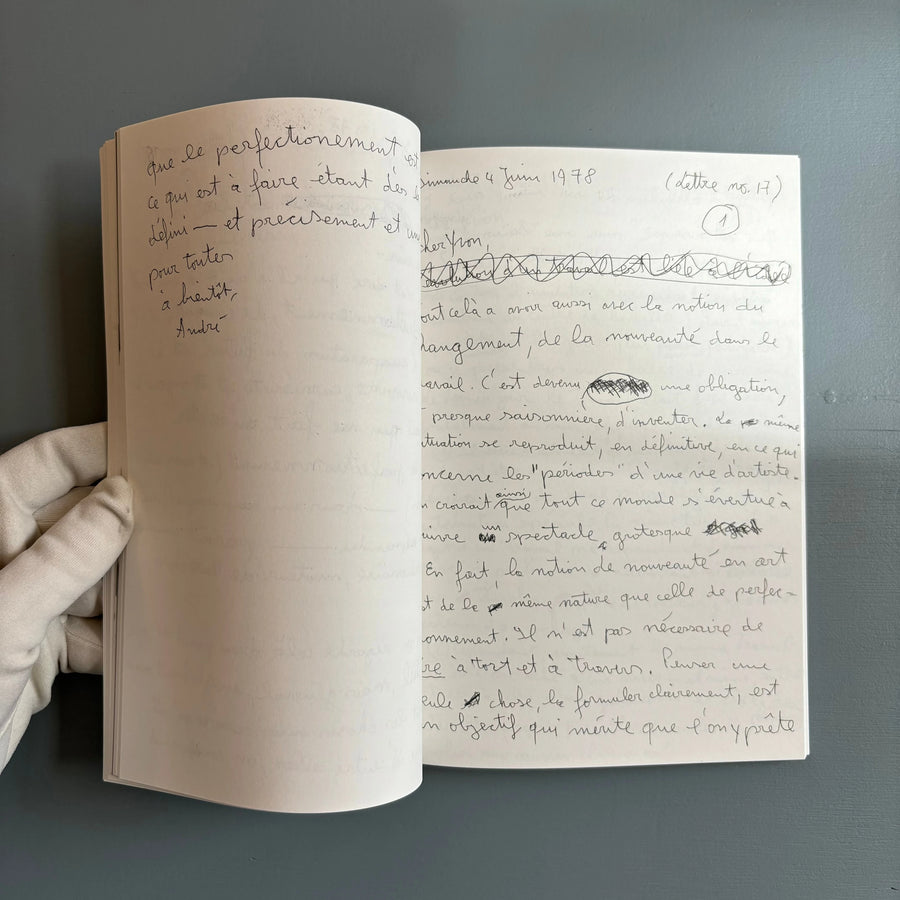 que le perfectionement est
ce qui est à faire étant dès le
défini — et précisement et une
pour toutes
à bientôt,
André
Dimanche 4 Juin 1978 (Lettre no. 17)
1
cher Yvon,
tout celà a avoir aussi avec la notion du
changement, de la nouveauté dans le
travail. C'est devenu une obligation,
presque saisonnière, d'inventer. La même
situation se reproduit, en définitive, en ce qui
concerne les "périodes" d'une vie d'artiste.
croirait ainsi que tout ce monde s'évertue à
suivre un spectacle grotesque
En fait, la notion de nouveauté en art
est de la même nature que celle de perfec-
tionnement. Il n'est pas nécessaire de
à tort et à travers. Penser une
seule chose, la formuler clairement, est
un objectif qui mérite que l'on y prête